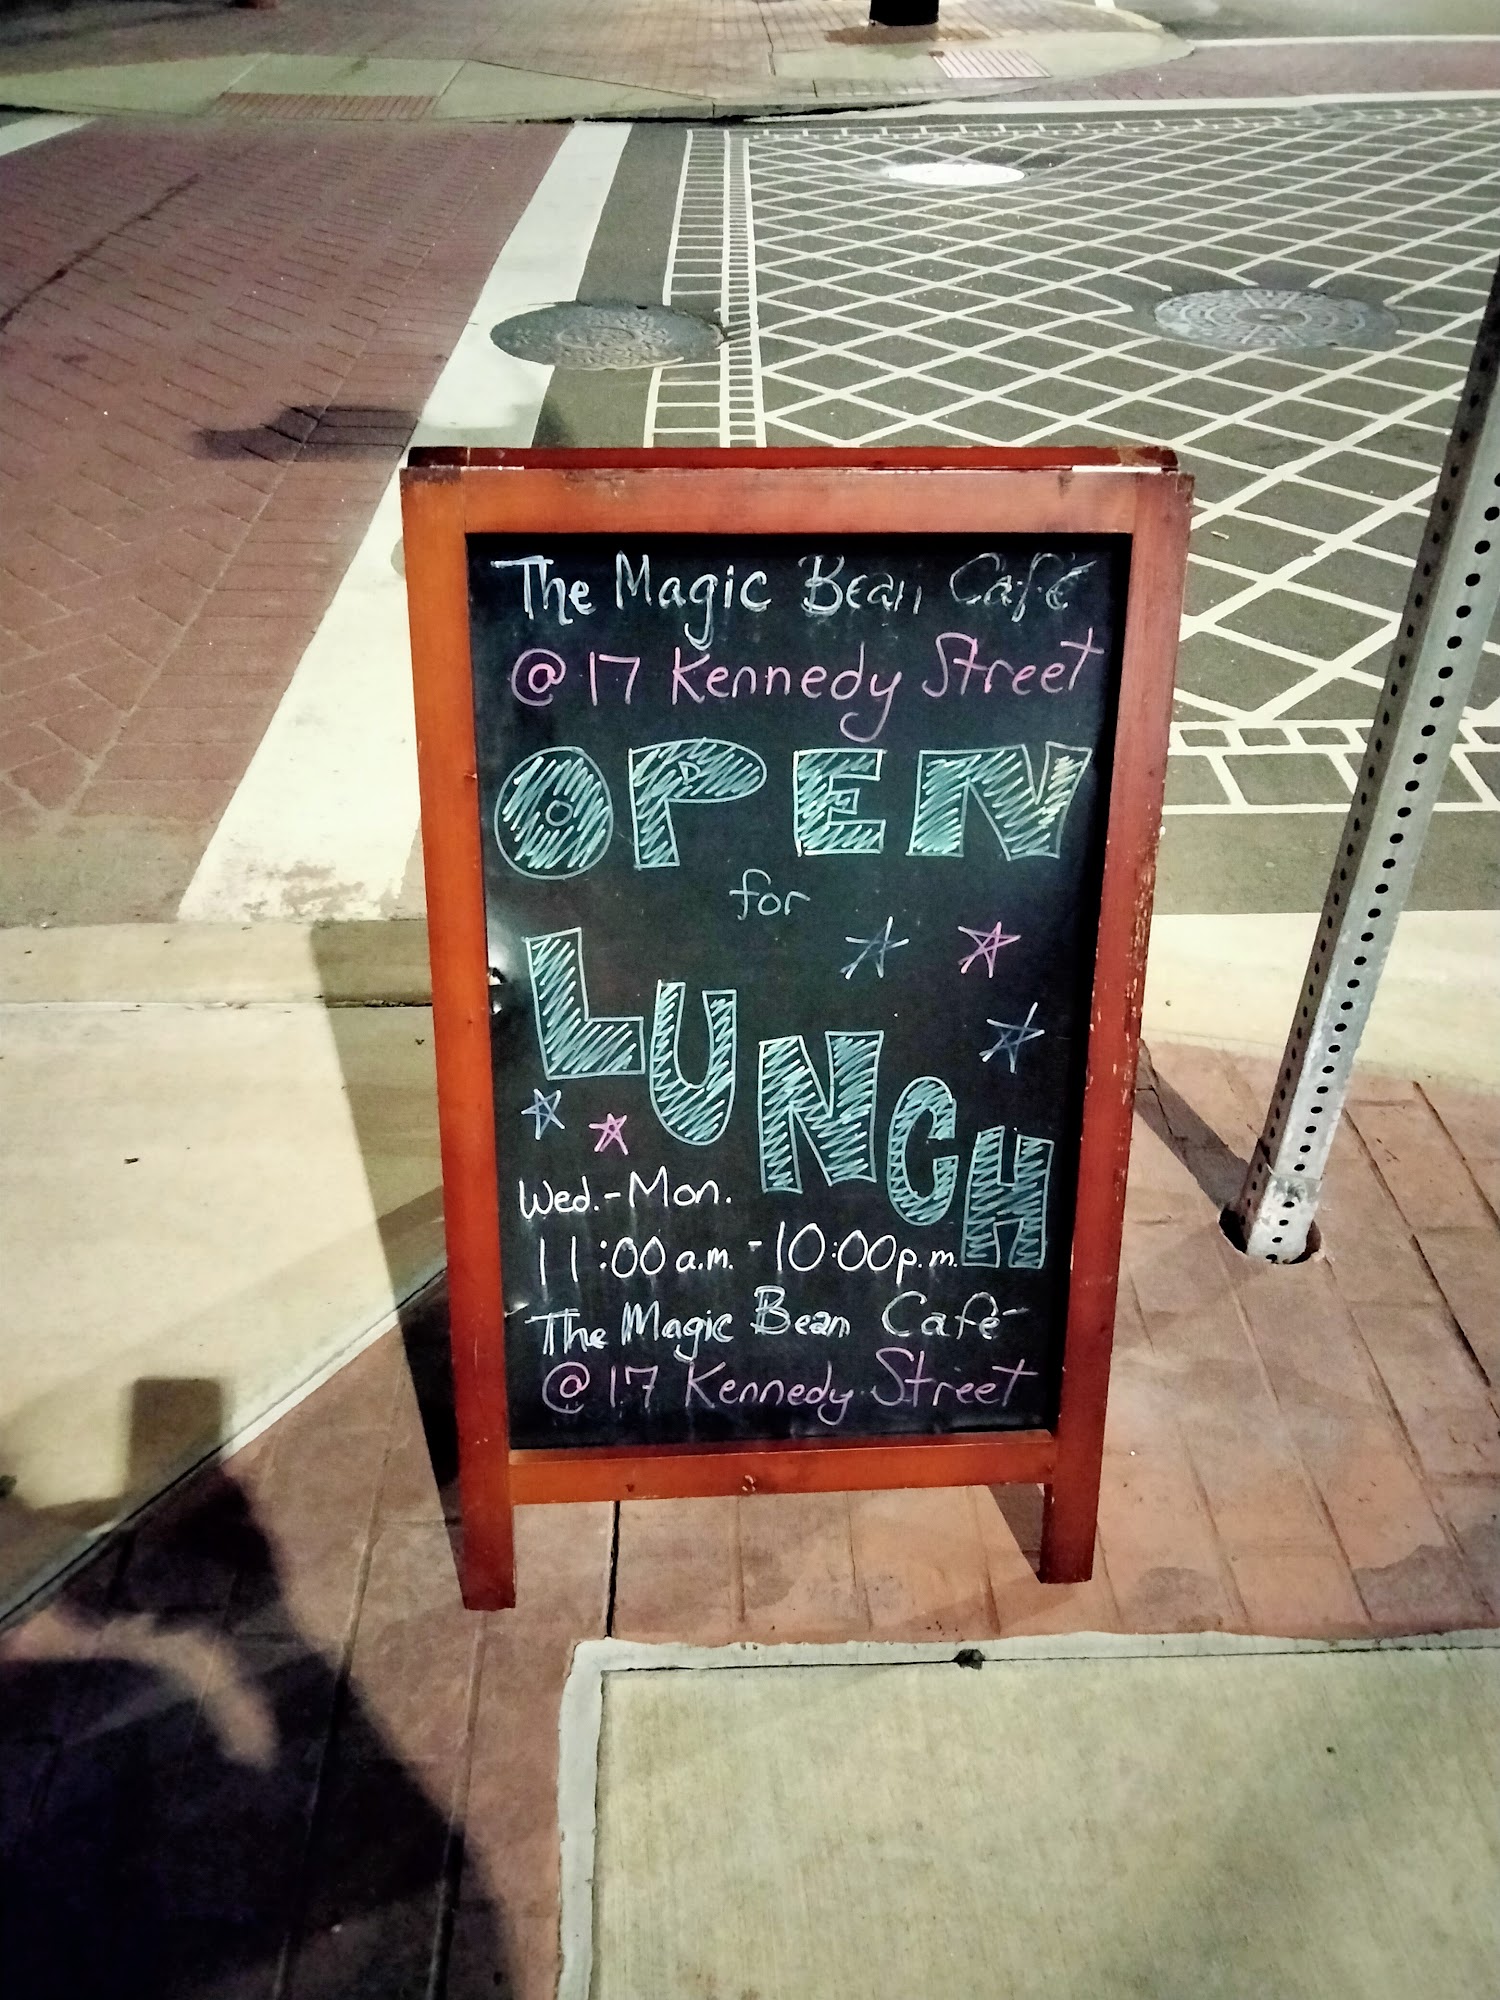 The Magic Bean Café
@ 17 Kennedy Street
OPEN
for
LUNCH
Wed.-Mon.
11:00 a.m. - 10:00 p.m.
The Magic Bean Café
@ 17 Kennedy Street